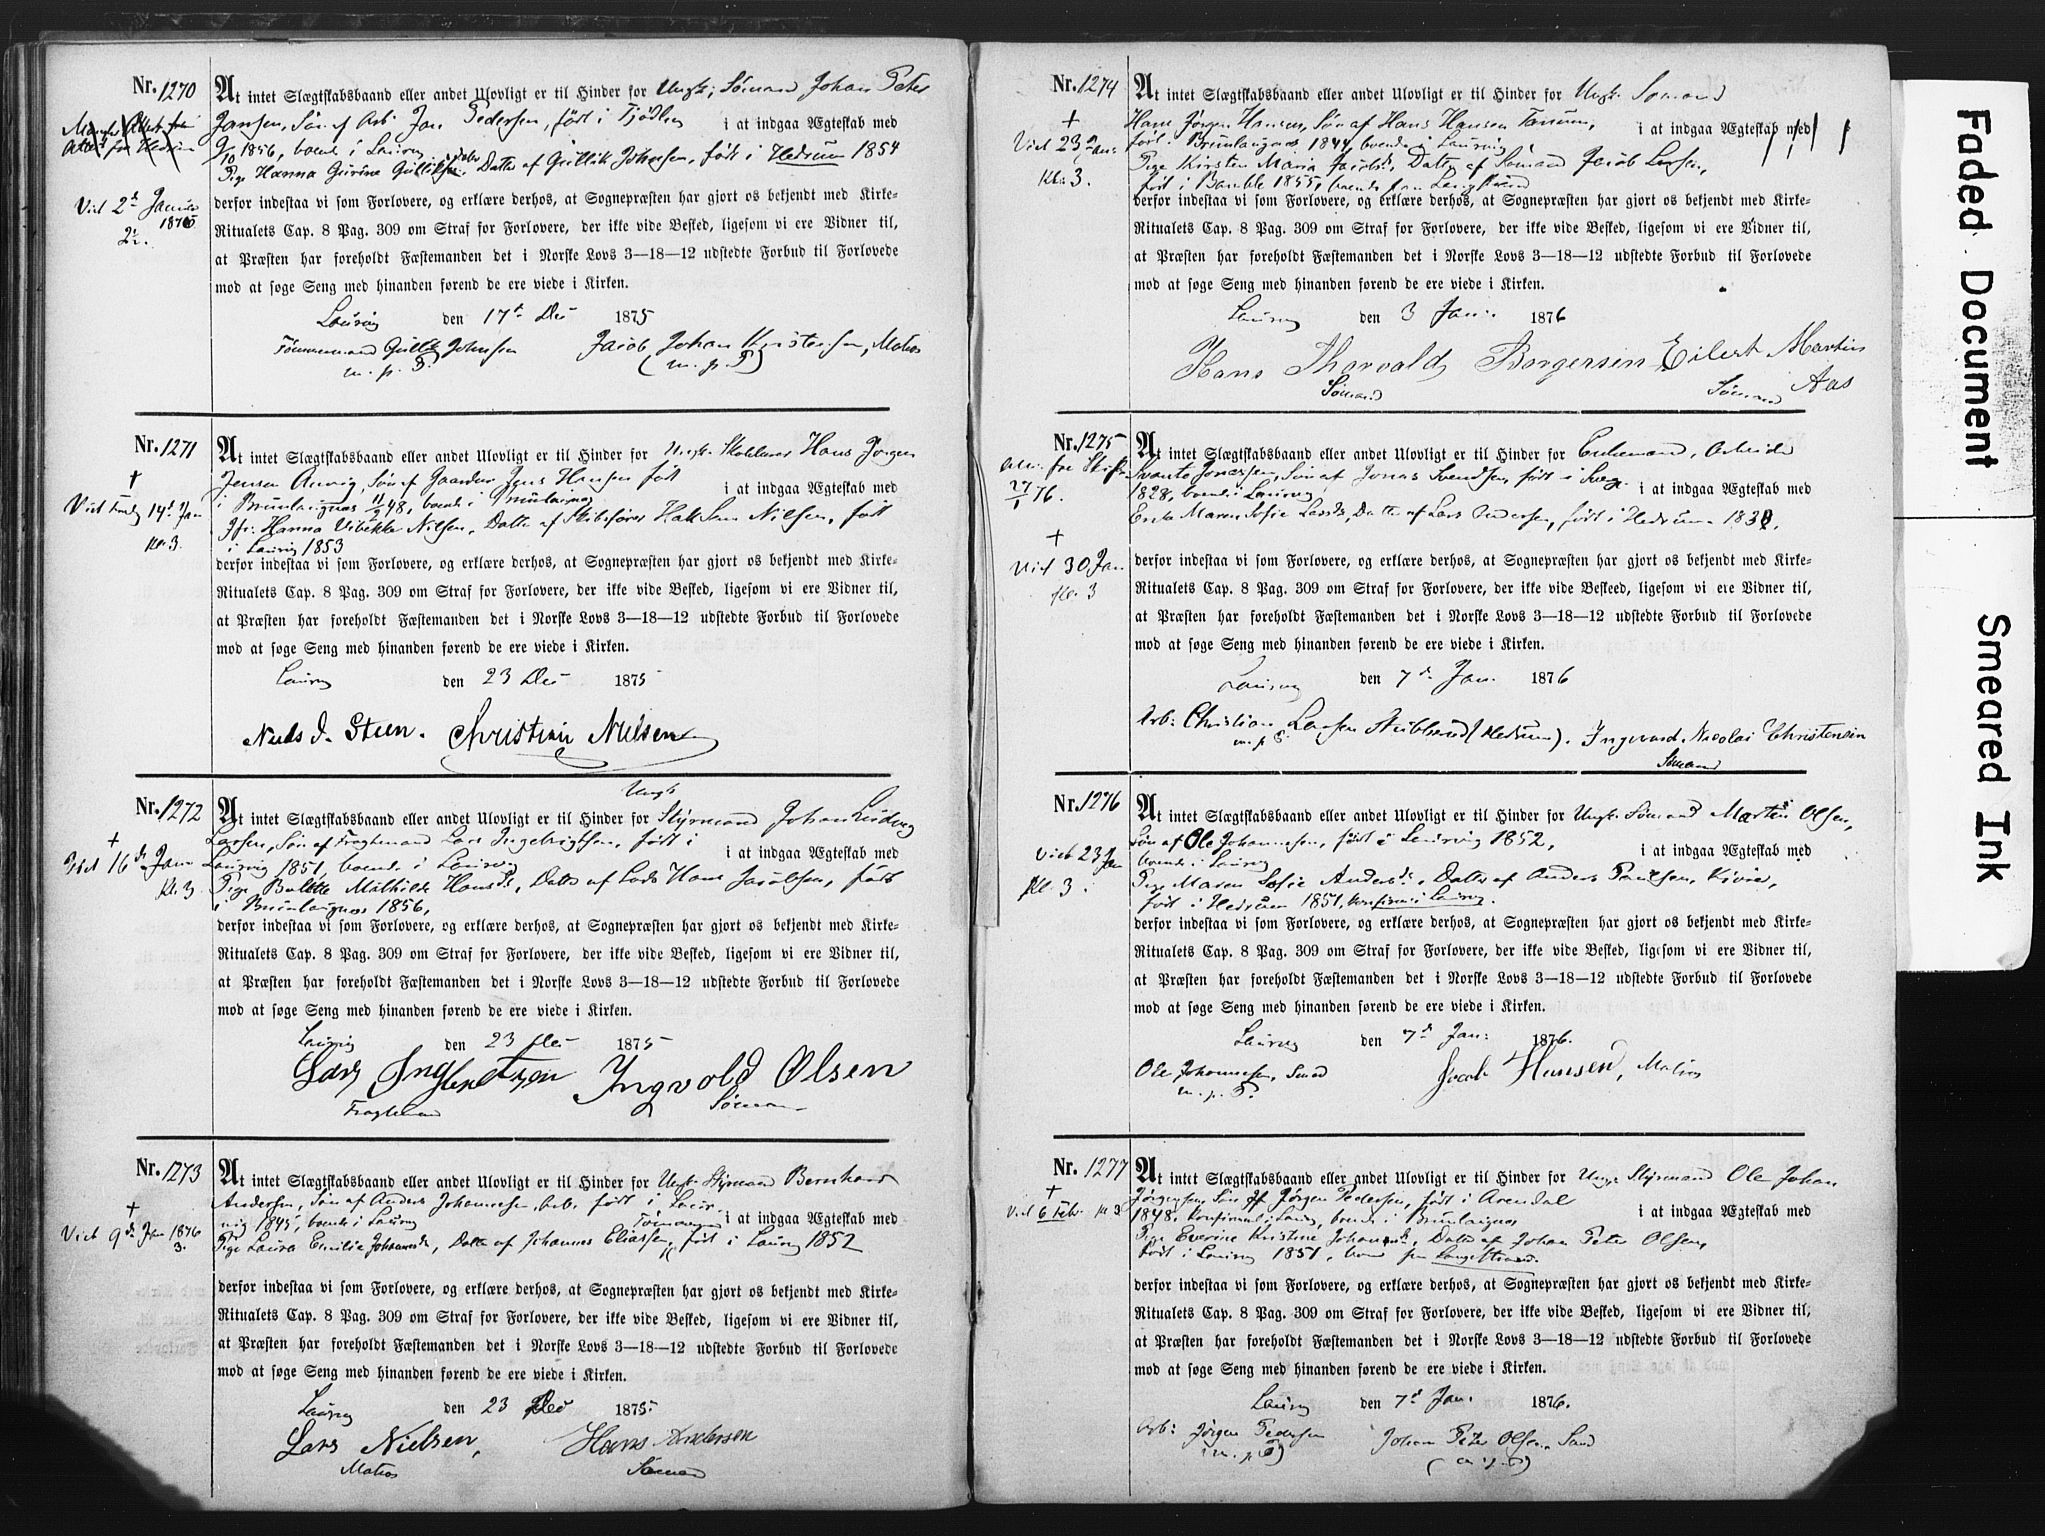 Nr. 1270
At intet Slægtskabsbaand eller andet Ulovligt er til Hinder for Ungk: Sømand Johan Peter
Jansen, Søn af Arb Jan Pedersen, født i Tjødling i at indgaa Ægteskab med
9/10 1856, boende i Laurvig
Pige Hanna Gurine Gulliksdatter, Datter af Gullik Johnsen, født i Hedrum 1854
Viet 2den Januar
1876
derfor indestaa vi som Forlovere, og erklære derhos, at Sognepræsten har gjort os bekjendt med Kirke-
Ritualets Cap. 8 Pag. 309 om Straf for Forlovere, der ikke vide Besked, ligesom vi ere Vidner til,
at Præsten har foreholdt Fæstemanden det i Norske Lovs 3—18—12 udstedte Forbud til Forlovede
mod at søge Seng med hinanden førend de ere viede i Kirken.
Laurvig den 17de Dec 1875
Tømmermand Gullik Johnsen Jacob Johan Kristensen, Matros
m. p. P. (m. p. P)
Nr. 1271
At intet Slægtskabsbaand eller andet Ulovligt er til Hinder for Ungk: Skolelærer Hans Jørgen
Jensen Søn af Gaardm Jens Hansen født i at indgaa Ægteskab med
i Brunlaugnæs 48, boende i Brunlaugnæs
Hanna Vibekke Nilsen, Datter af Skibsfører Nilsen, født
i Laurvig 1853
+
Viet 14de Jan
kl. 3.
derfor indestaa vi som Forlovere, og erklære derhos, at Sognepræsten har gjort os bekjendt med Kirke-
Ritualets Cap. 8 Pag. 309 om Straf for Forlovere, der ikke vide Besked, ligesom vi ere Vidner til,
at Præsten har foreholdt Fæstemanden det i Norske Lovs 3—18—12 udstedte Forbud til Forlovede
mod at søge Seng med hinanden førend de ere viede i Kirken.
Laurvig den 23 Dec 1875
Niels J. Steen. Christian Nielsen
Nr. 1272
Ungk
At intet Slægtskabsbaand eller andet Ulovligt er til Hinder for Styrmand Johan Ludvig
Larsen, Søn af Fragtmand Lars Ingebrigtsen, født i i at indgaa Ægteskab med
Laurvig 1851, boende i Laurvig
Pige Mathilde Hansd, Datter af Lods Hans Jacobsen, født
i Brunlaugnæs 1856,
+
Viet 16de Jan
kl. 3
derfor indestaa vi som Forlovere, og erklære derhos, at Sognepræsten har gjort os bekjendt med Kirke-
Ritualets Cap. 8 Pag. 309 om Straf for Forlovere, der ikke vide Besked, ligesom vi ere Vidner til,
at Præsten har foreholdt Fæstemanden det i Norske Lovs 3—18—12 udstedte Forbud til Forlovede
mod at søge Seng med hinanden førend de ere viede i Kirken.
Laurvig den 23 Dec 1875
Lars Ingbretsen Ingvold Olsen
Fragtmand Sømand
Nr. 1273
At intet Slægtskabsbaand eller andet Ulovligt er til Hinder for Ungk: Styrmand Bernhard
Andersen, Søn af Anders Johannesen, Arb. født i Laur-
vig 1845, boende i Laurvig Tømmermand i at indgaa Ægteskab med
Pige Laura Emilie Johannesd, Datter af Johannes Eliassen, født i Laurvig 1852
+
Viet 9de Jan 1876
3.
derfor indestaa vi som Forlovere, og erklære derhos, at Sognepræsten har gjort os bekjendt med Kirke-
Ritualets Cap. 8 Pag. 309 om Straf for Forlovere, der ikke vide Besked, ligesom vi ere Vidner til,
at Præsten har foreholdt Fæstemanden det i Norske Lovs 3—18—12 udstedte Forbud til Forlovede
mod at søge Seng med hinanden førend de ere viede i Kirken.
Laurvig den 23 Dec 1875
Lars Nielsen, Hans Andersen
Matros Sømand
Nr. 1274
At intet Slægtskabsbaand eller andet Ulovligt er til Hinder for Ungk: Sømand
Hans Jørgen Hansen, Søn af Hans Hansen Tanum, i at indgaa Ægteskab med
født i Brunlaugnæs 1844, boende i Laurvig
Pige Kirsten Maria Jacobsd, Datter af Sømand Jacob Larsen,
født i Bamble 1855, boende paa Langestrand
+
Viet 23de Jan:
Kl. 3.
derfor indestaa vi som Forlovere, og erklære derhos, at Sognepræsten har gjort os bekjendt med Kirke-
Ritualets Cap. 8 Pag. 309 om Straf for Forlovere, der ikke vide Besked, ligesom vi ere Vidner til,
at Præsten har foreholdt Fæstemanden det i Norske Lovs 3—18—12 udstedte Forbud til Forlovede
mod at søge Seng med hinanden førend de ere viede i Kirken.
Laurvig den 3 Jan. 1876
Hans Thorvald Borgersen Eilert Martin
Sømand Sømand Aas
Nr. 1275
At intet Slægtskabsbaand eller andet Ulovligt er til Hinder for Enkemand, Arbeider
Svante Jonassen, Søn af Jonas Svendsen, født i Sverige i at indgaa Ægteskab med
1828, boende i Laurvig
Enke Maren Sofie Larsd, Datter af Lars Andersen, født i Hedrum 183
Att. fra Skifte
27/1 76.
+
Viet 30 Jan.
kl. 3
derfor indestaa vi som Forlovere, og erklære derhos, at Sognepræsten har gjort os bekjendt med Kirke-
Ritualets Cap. 8 Pag. 309 om Straf for Forlovere, der ikke vide Besked, ligesom vi ere Vidner til,
at Præsten har foreholdt Fæstemanden det i Norske Lovs 3—18—12 udstedte Forbud til Forlovede
mod at søge Seng med hinanden førend de ere viede i Kirken.
Laurvig den 7de Jan. 1876
Arb: Christian Larsen (Hedrum). Ingvard Nicolai Christensen
m. p. P. Sømand
Nr. 1276
At intet Slægtskabsbaand eller andet Ulovligt er til Hinder for Ungk: Sømand Martin Olsen,
Søn af Ole Johannesen, født i Laurvig 1852, i at indgaa Ægteskab med
boende i Laurvig
Pige Maren Sofie Andersd, Datter af Anders Paulsen,
født i Hedrum 1851, konfirm: i Laurvig.
Viet 23 Jan
Kl. 3.
derfor indestaa vi som Forlovere, og erklære derhos, at Sognepræsten har gjort os bekjendt med Kirke-
Ritualets Cap. 8 Pag. 309 om Straf for Forlovere, der ikke vide Besked, ligesom vi ere Vidner til,
at Præsten har foreholdt Fæstemanden det i Norske Lovs 3—18—12 udstedte Forbud til Forlovede
mod at søge Seng med hinanden førend de ere viede i Kirken.
Laurvig den 7de Jan: 1876.
Ole Johannesen, Jacob Hansen, Matros
m. p. P.
Nr. 1277
At intet Slægtskabsbaand eller andet Ulovligt er til Hinder for Ungk: Styrmand Ole Johan
Jørgensen, Søn af Jørgen Pedersen, født i Arendal i at indgaa Ægteskab med
1848, konfirmert i Laurvig, boende i Brunlaugnæs
Pige Everine Kristine Johansd, Datter af Johan Peter Olsen,
født i Laurvig 1851, boende paa Langestrand.
+
Viet 6 Feb. kl 3
derfor indestaa vi som Forlovere, og erklære derhos, at Sognepræsten har gjort os bekjendt med Kirke-
Ritualets Cap. 8 Pag. 309 om Straf for Forlovere, der ikke vide Besked, ligesom vi ere Vidner til,
at Præsten har foreholdt Fæstemanden det i Norske Lovs 3—18—12 udstedte Forbud til Forlovede
mod at søge Seng med hinanden førend de ere viede i Kirken.
Laurvig den 7de Jan. 1876.
Arb: Jørgen Pedersen Johan Peter Olsen
(m. p. P) (m. p. P)
Faded Document
Smeared Ink